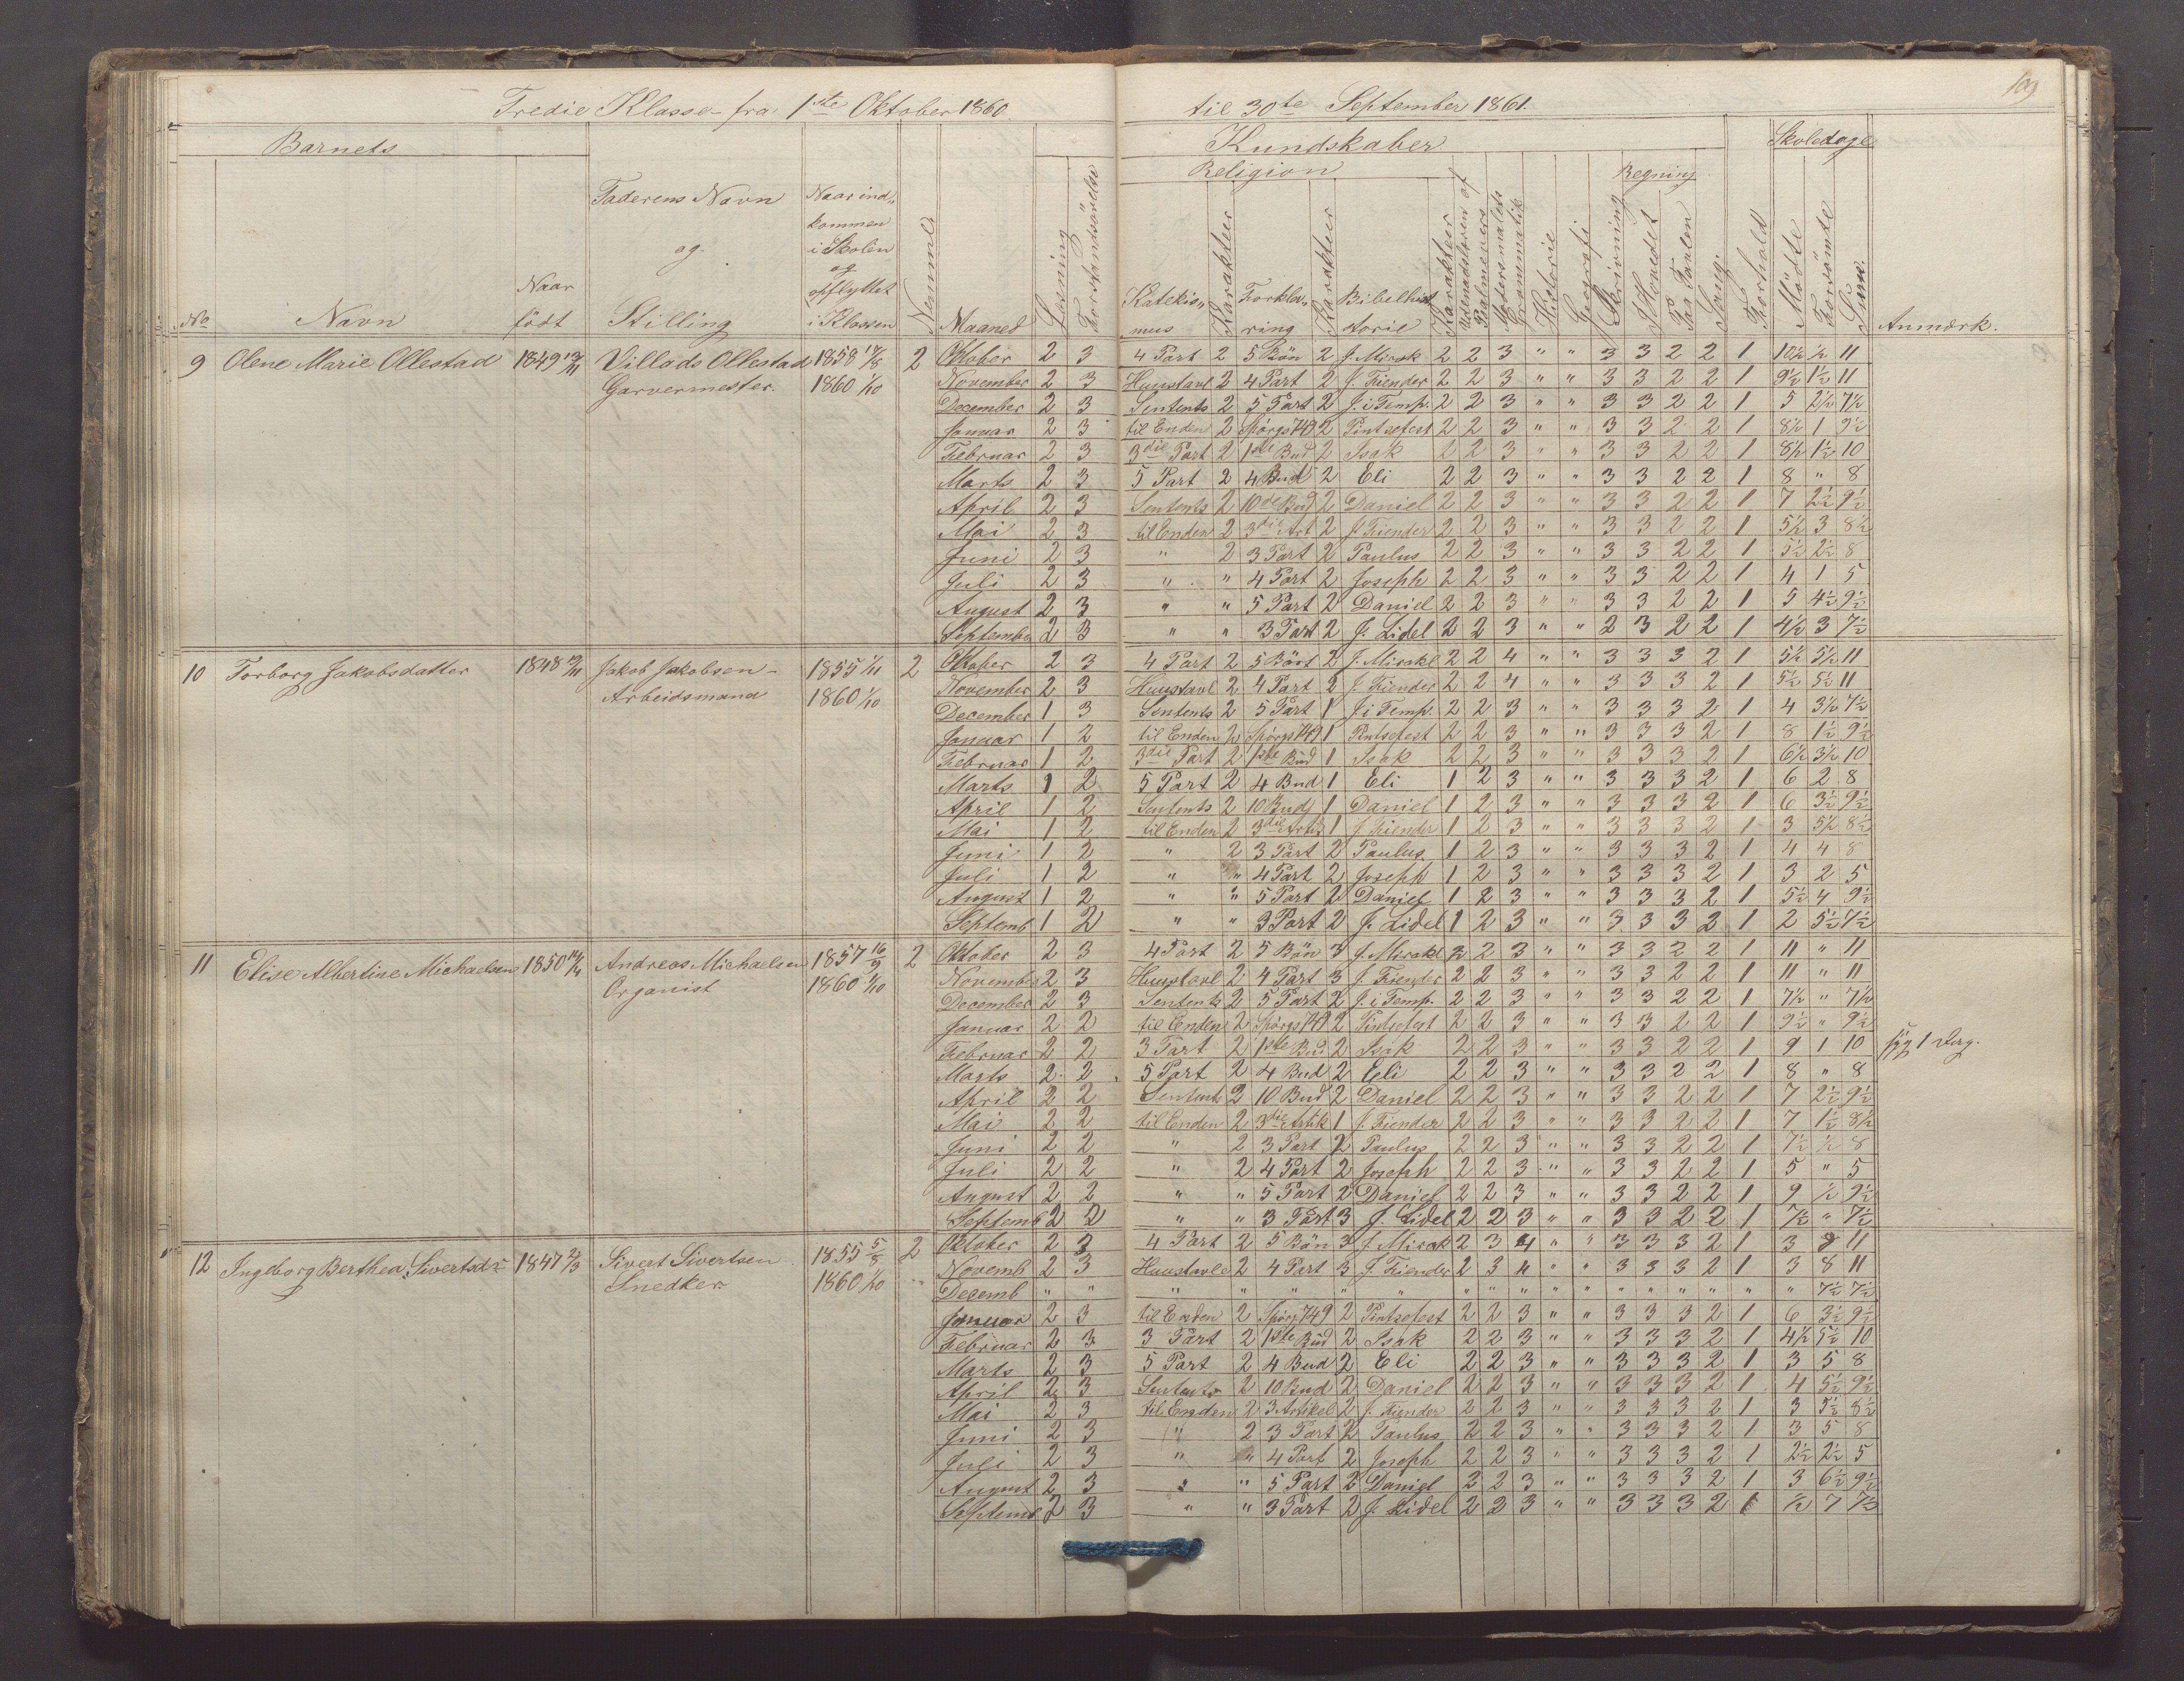 Tredie Klasse fra 1ste Oktober 1860 til 30te September 1861.
109
Barnets Kundskaber Skoledage
Religion Regning
No Navn Naar født Faderens Navn og Stilling Naar ind„kommen i Skolen og opflyttet i Klassen Nemme Maaned Læsning Forstandsøvelse Katekis„mus Karakteer Forkla„ring Karakteer Bibelhistorie Karakteer Udenadslæren af Psalmevers Modersmaalets Grammatik Historie Geografi Skrivning I Hovedet Paa Tavlen Sang. Forhold Mødte Forsømte Sum. Anmærk.
9 Olene Marie Ollestad 1849 Villads Ollestad 1858 2 Oktober 2 3 4 Part 2 5 Bøn 2 J. Mirak 2 2 3 " " 3 3 2 2 1 10½ ½ 11
Garvermester. 1860 1/10 November 2 3 Huustavl 2 4 Part 2 J. Fiender 2 2 3 " " 3 3 2 2 1 9½ 1½ 11
December 2 3 Sentents 2 5 Part 2 J. i Temp. 2 2 3 " " 3 3 2 2 1 5 2½ 7½
Januar 2 3 til Enden 2 Spørgs 749 2 Pintsefest 2 2 3 " " 3 3 2 2 1 8½ 1 9½
Februar 2 3 3die Part 2 1ste Bud 2 Isak 2 2 3 " " 3 3 2 2 1 8½ 1½ 10
Marts 2 3 5 Part 2 4 Bud 2 Eli 2 2 3 " " 3 3 2 2 1 8 " 8
April 2 3 Sentents 2 10de Bud 2 Daniel 2 2 3 " " 3 3 2 2 1 7 2½ 9½
Mai 2 3 til Enden 2 3die Art 2 J. Fiender 2 2 3 " " 3 3 2 2 1 5½ 3 8½
Juni 2 3 " 2 3 Part 2 Paulus 2 2 3 " " 3 3 2 2 1 5½ 2½ 8
Juli 2 3 " " 4 Part 2 Joseph 2 2 3 " " 3 3 2 2 1 4 1 5
August 2 3 " " 5 Part 2 Daniel 2 2 3 " " 3 3 2 2 1 5 4½ 9½
September 2 3 " " 3 Part 2 J. Lidel 2 2 3 " " 2 3 2 2 1 4½ 3 7½
10 Torborg Jakobsdatter 1848 Jakob Jakobsen 1855 1/11 2 Oktober 2 3 4 Part 2 5 Bøn 2 J. Mirakl 2 2 4 " " 3 3 3 2 1 5½ 5½ 11
Arbeidsmand 1860 1/10 November 2 3 Huustavl 2 4 Part 2 J. Fiender 2 2 4 " " 3 3 3 2 1 5½ 5½ 11
December 1 3 Sentents 2 5 Part 1 J i Temp. 2 2 3 " " 3 3 3 2 1 4 3½ 7½
Januar 1 2 til Enden 2 Spørgs 749 1 Pintsefest 2 2 3 " " 3 3 3 2 1 8 1½ 9½
Februar 1 2 3die Part 2 1ste Bud 1 Isak 2 2 3 " " 3 3 3 2 1 6½ 3½ 10
Marts 1 2 5 Part 2 4 Bud 1 Eli 1 2 3 " " 3 3 3 2 1 6 2 8
April 1 2 Sentents 2 10 Bud 1 Daniel 1 2 3 " " 3 3 3 2 1 6 3½ 9½
Mai 1 2 til Enden 2 3die 1 J. Fiender 1 2 3 " " 3 3 3 2 1 3 5½ 8½
Juni 1 2 " 2 3 Part 2 Paulus 1 2 3 " " 3 3 3 2 1 4 4 8
Juli 1 2 " " 4 Part 2 Joseph 1 2 3 " " 3 3 3 2 1 3 2 5
August 1 2 " " 5 Part 2 Daniel 1 2 3 " " 3 3 3 2 1 5½ 4 9½
Septemb 1 2 " " 3 Part 2 J. Lidel 1 2 3 " " 3 3 3 2 1 2 5½ 7½
11 Elise Albertine Michaelsen 1850 Andreas Michaelsen 1857 16/9 2 Oktober 2 3 4 Part 2 5 Bøn 3 J. Mirakl 2 2 3 " " 3 3 2 2 1 11 " 11
Organist 1860 1/10 Novemb 2 3 Huustavl 2 4 Part 3 J. Fiender 2 2 3 " " 3 3 2 2 1 11 " 11
December 2 3 Sentents 2 5 Part 2 J. i Temp. 2 2 3 " " 3 3 2 2 1 7½ " 7½
Januar 2 2 til Enden 2 Spørgs 749 2 Pintsefest 2 2 3 " " 3 3 2 2 1 9½ " 9½
Februar 2 2 3 Part 2 1ste Bud 2 Isak 2 2 3 " " 3 3 2 2 1 9 1 10 syg 1 Dag.
Marts 2 2 5 Part 2 4 Bud 2 Eli 2 2 3 " " 3 3 2 2 1 8 " 8
April 2 2 Sentents 2 10 Bud 2 Daniel 2 2 3 " " 3 3 2 2 1 7 2½ 9½
Mai 2 2 til Enden 2 3die Artik 1 J. Fiender 2 2 3 " " 3 3 2 2 1 7 1½ 8½
Juni 2 2 " 2 3 Part 2 Paulus 2 2 3 " " 3 3 2 2 1 7½ ½ 8
Juli 2 2 " 2 4 Part 2 Joseph 2 2 3 " " 3 3 2 2 1 5 " 5
August 2 2 " " 5 Part 2 Daniel 2 2 3 " " 3 3 2 2 1 9 ½ 9½
Septemb 2 2 " " 3 Part 3 J. Lidel 2 2 3 " " 3 3 2 2 1 7½ " 7½
12 Ingeborg Berthea Sivertsdr 1847 Sivert Sivertsen 1855 5/8 2 Oktober 2 3 4 Part 2 5 Bøn 3 J. Mirak 2 3 4 " " 3 3 3 2 1 3 8 11
Snedker 1860 1/10 Novemb 2 3 Huustavle 2 4 Part 3 J. Fiender 2 3 4 " " 3 3 3 2 1 3 8 11
Decemb " " " " " " " " " " " " " " " " " " " 7½ 7½
Januar 2 3 til Enden 2 Spørg 749 2 Pintsefest 2 2 3 " " 3 3 3 2 1 6 3½ 9½
Februar 2 3 3 Part 2 1ste Bud 2 Isak 2 2 3 " " 3 3 3 2 1 4½ 5½ 10
Marts 2 3 5 Part 2 4 Bud 2 Eli 2 2 3 " " 3 3 3 2 1 3 5 8
April 2 3 Sentents 2 10 Bud 2 Daniel 2 2 3 " " 3 3 3 2 1 4 5½ 9½
Mai 2 3 til Enden 2 3 Artikel 2 J. Fiender 2 2 3 " " 3 3 3 2 1 3 5½ 8½
Juni 2 3 " 2 3 Part 2 Paulus 2 2 3 " " 3 3 3 2 1 3 5 8
Juli 2 3 " " 4 Part 2 Joseph 2 2 3 " " 3 3 3 2 1 2½ 2½ 5
August 2 3 " " 5 Part 2 Daniel 2 2 3 " " 3 3 3 2 1 3 6½ 9½
Septemb 2 3 " " 3 Part 2 J. Lidel 2 2 3 " " 3 3 3 2 1 ½ 7 7½